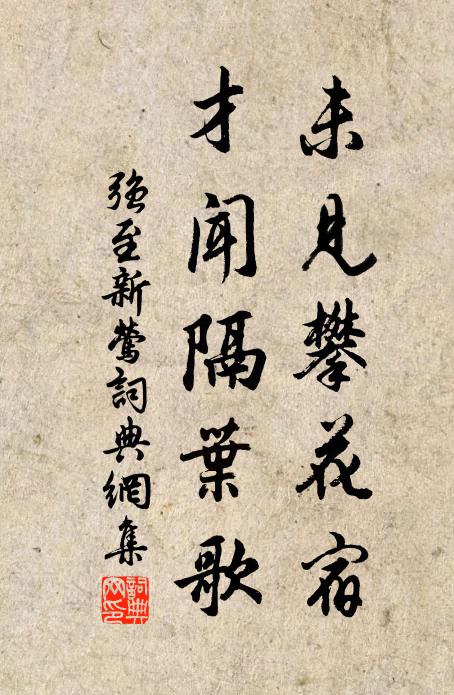 未見攀花宿
才聞隔葉歌
强至新鶯詞典網集
詞典网印